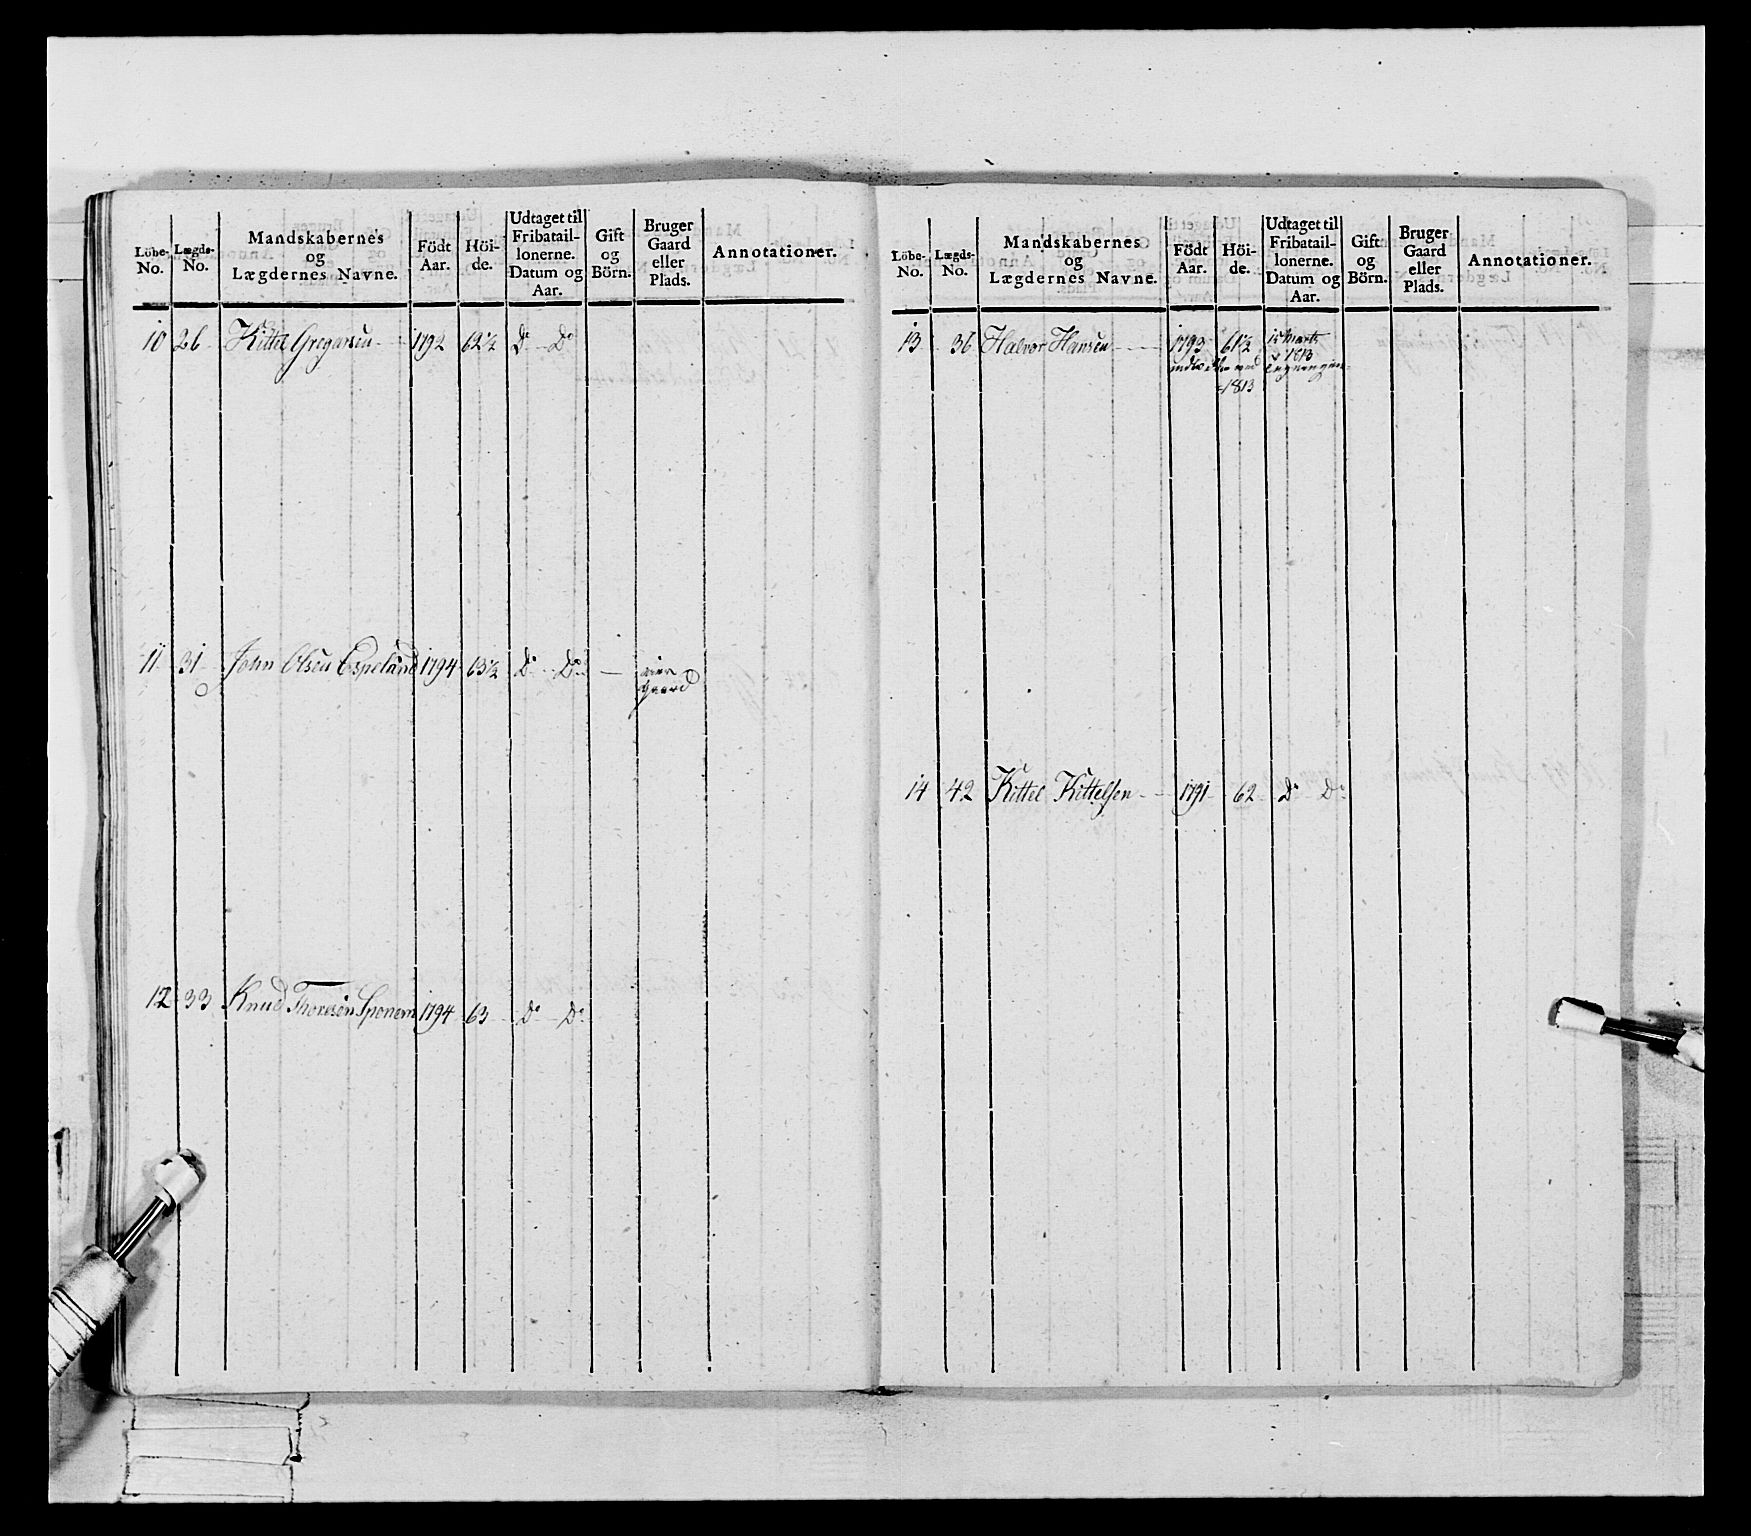 Löbe- No. | Lægds- No. | Mandskabernes og Lægdernes Navne. | Födt Aar. | Höi- de. | Udtaget til Fribatail- lonerne. Datum og Aar. | Gift og Börn. | Bruger Gaard eller Plads. | Annotationer.
10 26 Kittel Gregarsen 1792 62½ Do Do
11 31 John Olsen Espeland 1794 63½ Do Do —
Gaard
12 33 Knud Thoresen Sponem 1794 63 Do Do
Löbe- No. | Lægds- No. | Mandskabernes og Lægdernes Navne. | Födt Aar. | Höi- de. | Udtaget til Fribatail- lonerne. Datum og Aar. | Gift og Börn. | Bruger Gaard eller Plads. | Annotationer.
13 36 Halvor Hansen 1793 61½ 15 Marts
1813
ved
1813
14 42 Kittel Kittelsen 1791 62 Do Do